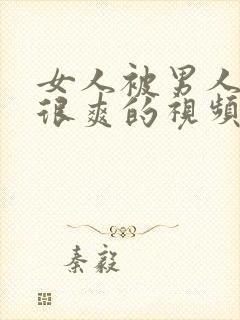 女人被男人
很爽的視頻
秦毅